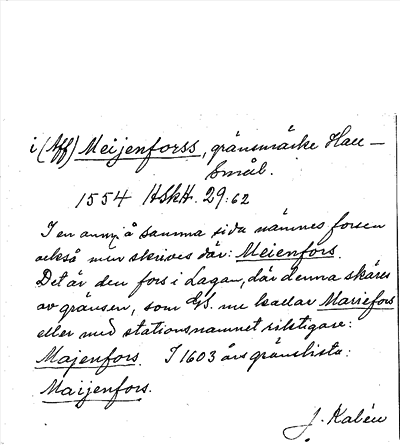 i (Aff) Meijenforss, gränsmärke Hall–
Smål.
1554 HSkH. 29:62
I en anm. å samma sida nämnes forsen
också men skrives där: Meienfors.
Det är den fors i Lagan, där denna skäres
av gränsen, som GS. nu kallar Mariefors
eller med stationsnamnet riktigare:
Majenfors. I 1603 års gränslista:
Maijenfors.
J. Kalén